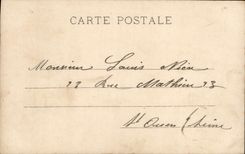 CARTE POSTALE
Monsieur Louis
23 Rue Mathieu 23
St Ouen (Seine